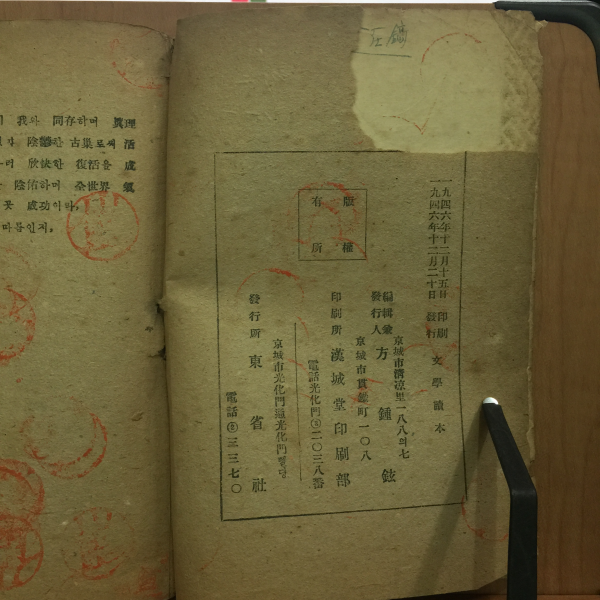 我와 同存하며 眞理
陰鬱한 古巢로써 活
欣快한 復活을 成
陰佑하며 全世界 氣
못 成功이라,
따름인저,
版權
有所
一九四六年十二月十五日 印刷
一九四六年十二月二十日 發行
文學讀本
京城市淸凉里一八八의七
編輯兼
發行人 方鍾鉉
京城市貫鐵町一〇八
印刷所 漢城堂印刷部
電話光化門③二〇三八番
京城市光化門通光化門빌딍
發行所 東省社
電話②三三七〇